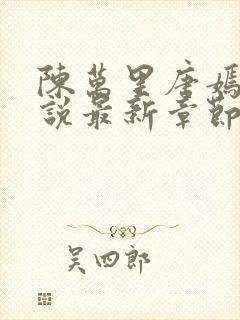 陳萬里唐嫣
說最新章節
吳四郎